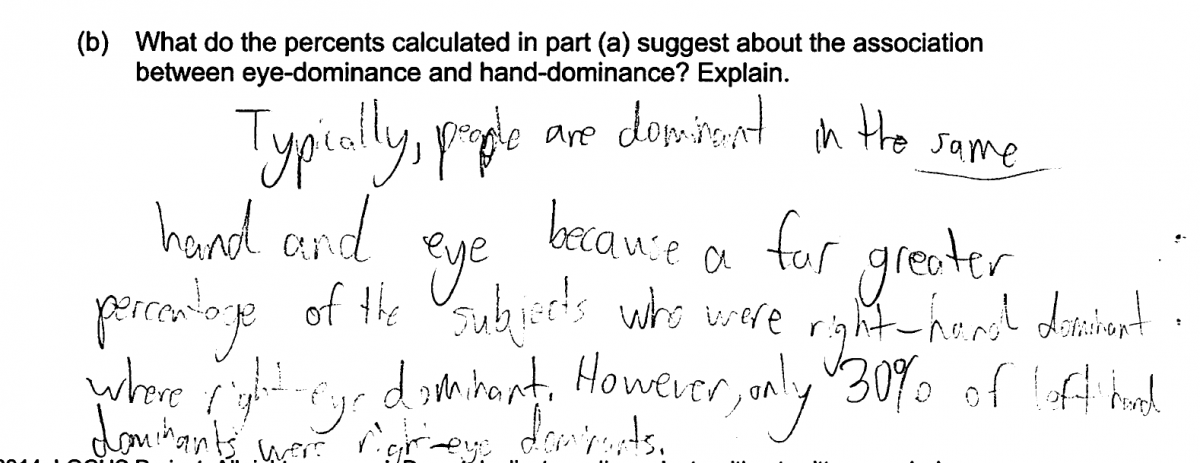 (b) What do the percents calculated in part (a) suggest about the association
between eye-dominance and hand-dominance? Explain.
Typically, people are dominant in the same
hand and eye because a far greater
percentage of the subjects who were right-hand dominant
where right-eye dominant. However, only 30% of left hand
dominants were right-eye dominants.